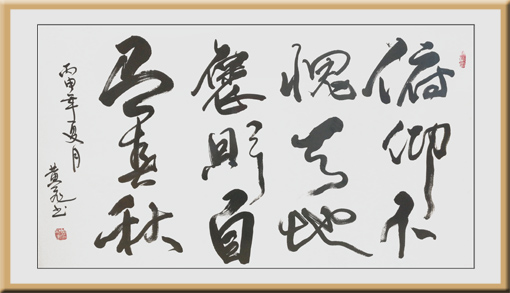 俯仰不
愧天地
褒貶自
有春秋
丙申年夏月
黄 书